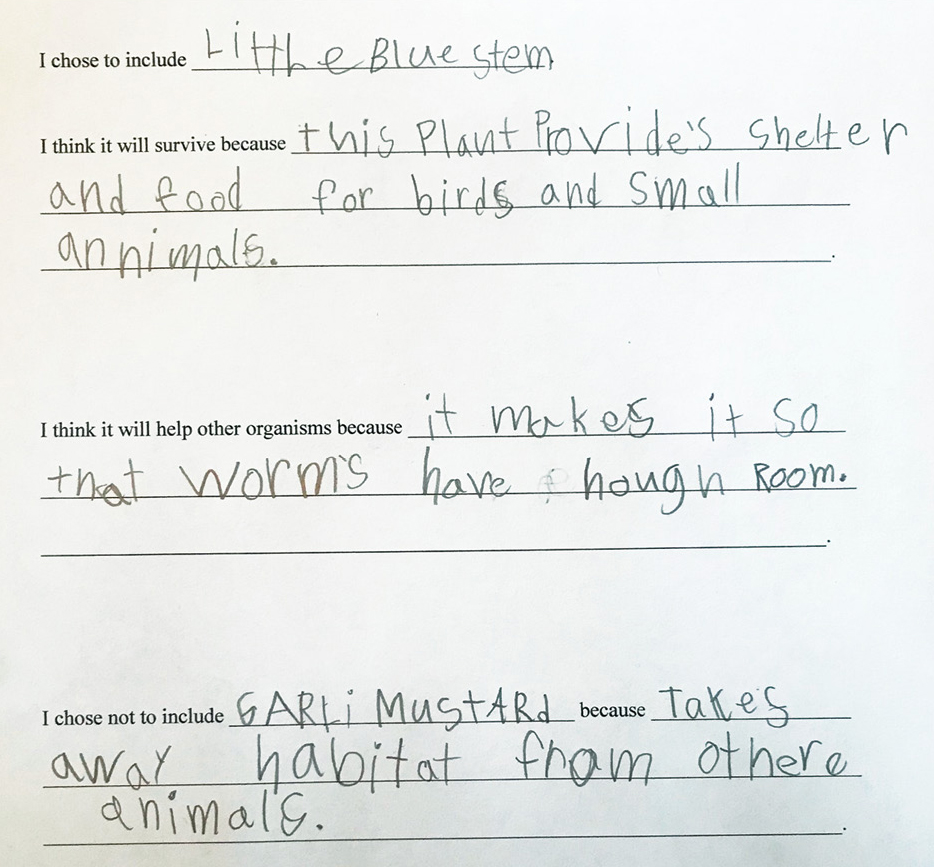 I chose to include Little Blue stem
I think it will survive because this Plant Provide's shelter
and food for birds and small
annimals.
I think it will help other organisms because it makes it so
that worm's have hough Room.
I chose not to include GARLi MustARd because Take's
away habitat fram othere
animals.